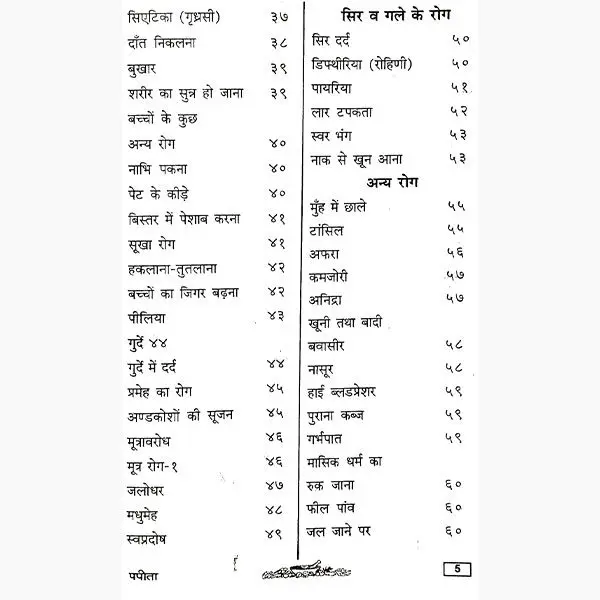 सिएटिका (गृध्रसी) ३७
दाँत निकलना ३८
बुखार ३९
शरीर का सुन्न हो जाना ३९
बच्चों के कुछ
अन्य रोग ४०
नाभि पकना ४०
पेट के कीड़े ४०
बिस्तर में पेशाब करना ४१
सूखा रोग ४१
हकलाना-तुतलाना ४२
बच्चों का जिगर बढ़ना ४२
पीलिया ४३
गुर्दे ४४
गुर्दे में दर्द ४४
प्रमेह का रोग ४५
अण्डकोशों की सूजन ४५
मूत्रावरोध ४६
मूत्र रोग-१ ४६
जलोधर ४७
मधुमेह ४८
स्वप्रदोष ४९
सिर व गले के रोग
सिर दर्द ५०
डिफ्थीरिया (रोहिणी) ५०
पायरिया ५१
लार टपकता ५२
स्वर भंग ५३
नाक से खून आना ५३
अन्य रोग
मुँह में छाले ५५
टांसिल ५५
अफरा ५६
कमजोरी ५७
अनिद्रा ५७
खूनी तथा बादी
बवासीर ५८
नासूर ५८
हाई ब्लडप्रेशर ५९
पुराना कब्ज ५९
गर्भपात ५९
मासिक धर्म का
रुक जाना ६०
फील पांव ६०
जल जाने पर ६०
पपीता
5